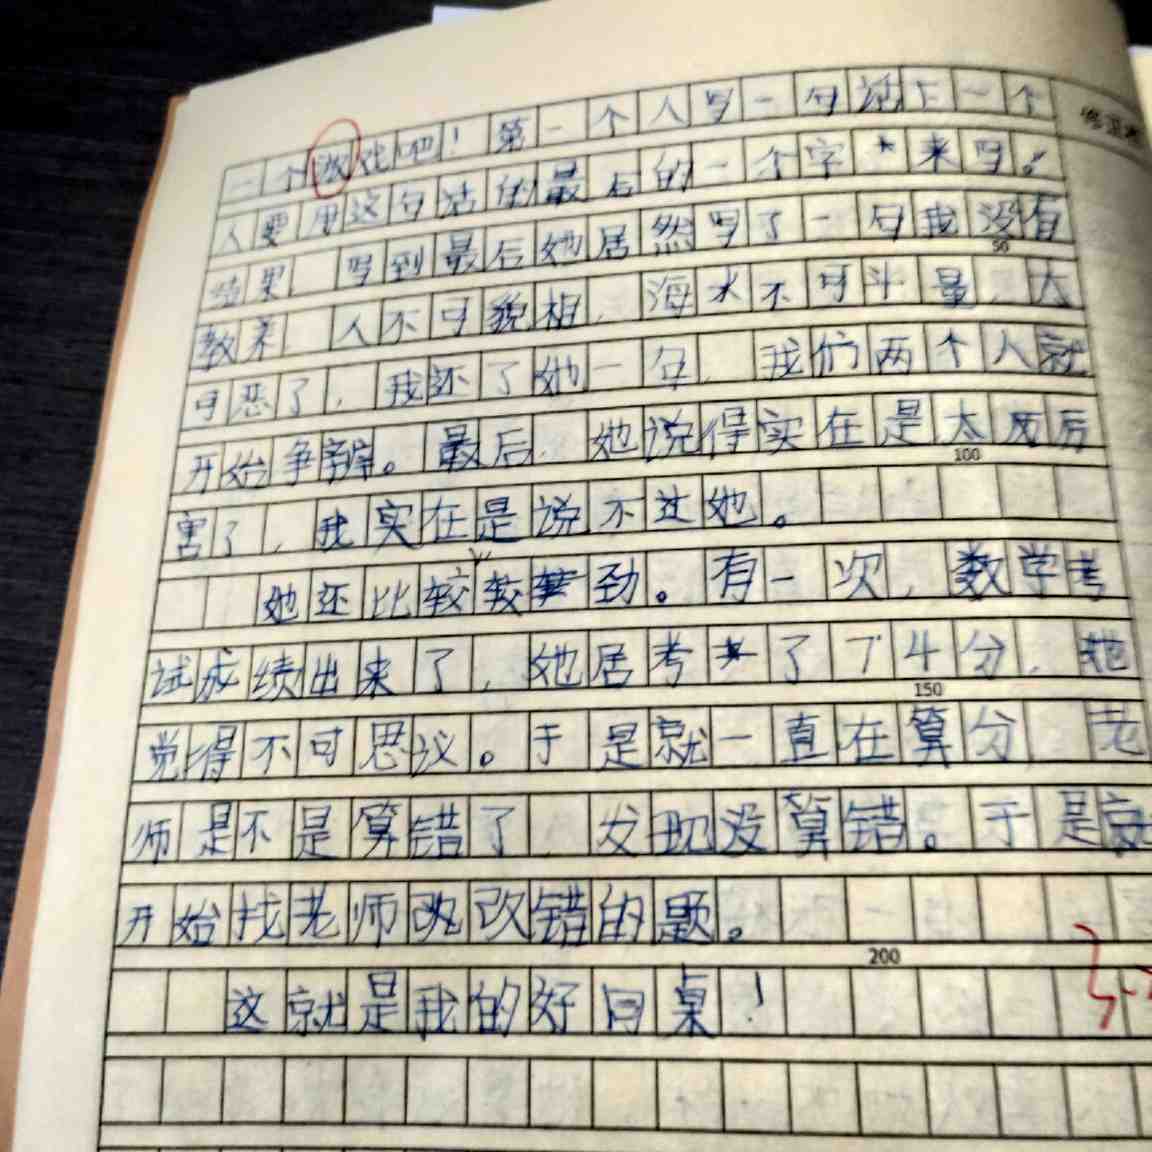 一个游戏吧！第一个人写一句话下一个
人要用这句话的最后的一个字来写。
结果 写到最后她居然写了一句我没有
教养 人不可貌相，海水不可斗量，太
可恶了，我还了她一句，我们两个人就
开始争辩。最后，她说得实在是太厉
害了，我实在是说不过她。
她还比较较劲。有一次，数学考
试成绩出来了，她居考了74分，她
觉得不可思议。于是就一直在算分 老
师是不是算错了，发现没算错。于是就
开始找老师改改错的题。
这就是我的好同桌！
50
100
150
200